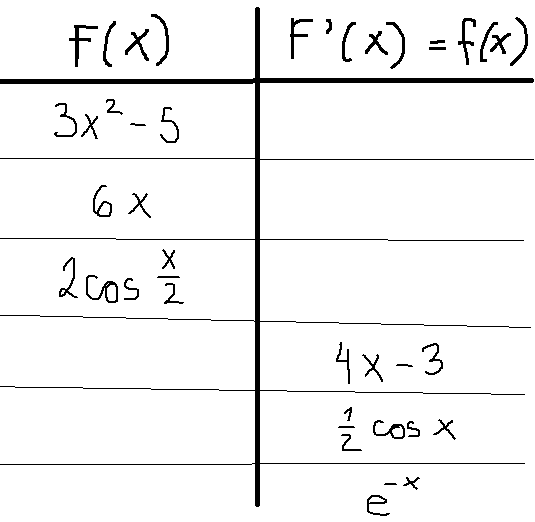 F(x) F'(x) = f(x)
3x² - 5
6x
2cos x/2
4x - 3
1/2 cos x
e⁻ˣ